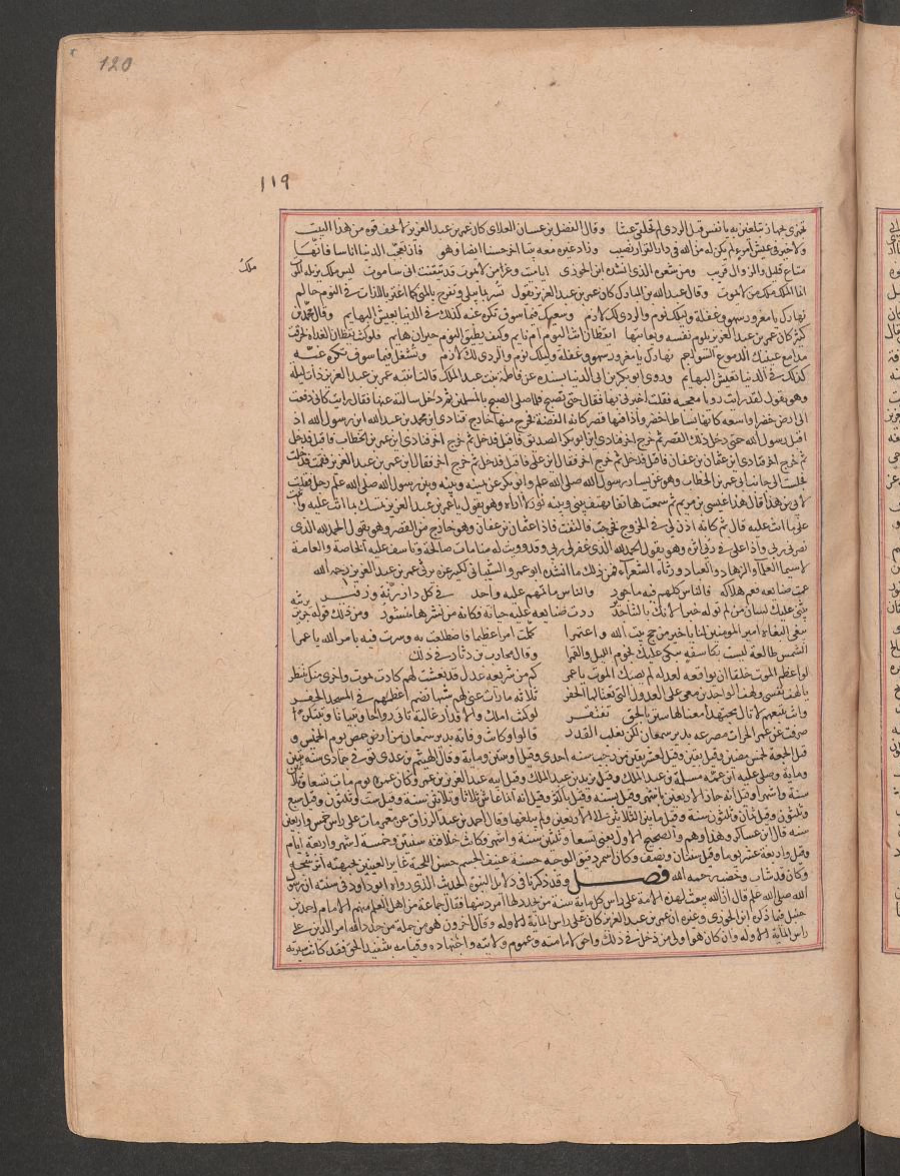 120
١١٩
تجهزي بجهاز تبلغين به يا نفس قبل الردى لم تخلقي عبثا وقال الفضل بن غسان الغلابي كان عمر بن عبد العزيز لا يجف فوه من هذا البيت
ولا خير في عيش امرء لم يكن له من الله في دار القرار نصيب وزاد غيره معه بيتا اخر حسنا ايضا وهو فان تعجب الدنيا اناسا فانها
متاع قليل والزوال قريب ومن شعره الذي انشده ابن الجوزي انا ميت وعز من لا يموت قد تيقنت اني ساموت ليس ملك يزيله الموت
ملك
انما الملك ملك من لا يموت وقال عبد الله بن المبارك كان عمر بن عبد العزيز يقول تسر بما يبلى وتفرح بالمنى كما اغتر باللذات في النوم حالم
نهارك يا مغرور سهو وغفلة وليلك نوم والردى لك لازم وسعيك فيما سوف تكره غبه كذلك في الدنيا تعيش البهايم وقال محمد بن
كثير كان عمر بن عبد العزيز يلوم نفسه ويعاتبها ايقظان انت اليوم ام نايم وكيف يطيق النوم حيران هايم فلو كنت يقظان الغداة لحرقت
مدامع عينيك الدموع السواجم نهارك يا مغرور سهو وغفلة وليلك نوم والردى لك لازم وتشغل فيما سوف تكره غبه
كذلك في الدنيا تعيش البهايم وروى ابو بكر بن ابي الدنيا بسنده عن فاطمة بنت عبد الملك قالت انتبه عمر بن عبد العزيز ذات ليلة
وهو يقول لقد رايت رويا معجبة فقلت اخبرني بها فقال حتى تصبح فلما صلى الصبح بالمسلمين ثم دخل سالته عنها فقال رايت كاني دفعت
الى ارض خضرا واسعة كانها بساط اخضر واذا فيها قصر كانه الفضة فخرج منه خارج فنادى اين محمد بن عبد الله اين رسول الله اذ
اقبل رسول الله حتى دخل ذلك القصر ثم خرج اخر فنادى اين ابو بكر الصديق فاقبل فدخل ثم خرج اخر فنادى اين عمر بن الخطاب فاقبل فدخل
ثم خرج اخر فنادى اين عثمان بن عفان فاقبل فدخل ثم خرج اخر فقال اين علي فاقبل فدخل ثم خرج اخر فقال اين عمر بن عبد العزيز فقمت فدخلت
فجلست الى جانب ابي عمر بن الخطاب وهو عن يسار رسول الله صلى الله عليه وابو بكر عن يمينه وبينه وبين رسول الله صلى الله عليه رجل فقلت
لابي من هذا قال هذا عيسى بن مريم ثم سمعت هاتفا يهتف بيني وبينه نور لا اراه وهو يقول يا عمر بن عبد العزيز تمسك بما انت عليه واثبت
على ما انت عليه قال ثم كانه اذن لي في الخروج فخرجت فالتفت فاذا عثمان بن عفان وهو خارج من القصر وهو يقول الحمد لله الذي
نصرني ربي واذا علي في اثره وهو يقول الحمد لله الذي غفر لي ربي وقد رويت له منامات صالحة وتاسف عليه الخاصة والعامة
لا سيما العلما والزهاد والعباد ورثاه الشعرا فمن ذلك ما انشده ابو عمرو الشيباني لكثير عزة يرثي عمر بن عبد العزيز رحمه الله
عمت صنايعه فعم هلاكه فالناس كلهم فيه ماجور والناس ماتمهم عليه واحد في كل دار رنة وزفير
يثني عليك لسان من لم توله خيرا لانك بالثناء جدير ردت صنايعه عليه حياته فكانه من نشرها منشور ومن ذلك قول جرير يرثيه
ينعى النعاة امير المومنين لنا يا خير من حج بيت الله واعتمرا حملت امرا عظيما فاضطلعت به وسرت فيه بامر الله يا عمرا
الشمس طالعة ليست بكاسفة تبكي عليك نجوم الليل والقمرا وقال محارب بن دثار في ذلك
لو اعظم الموت خلقا ان يواقعه لعدله لم يصبك الموت يا عمر كم من شريعة عدل قد نعشت لهم كادت تموت واخرى منك تنتظر
يا لهف نفسي ولهف الواجدين معي على العدول التي تغتالها الحفر ثلاثة ما رات عيني لهم شبها تضم اعظمهم في المسجد الحفر
وانت تتبعهم لا تال مجتهدا معنا لها سنن بالحق تفتقر لو كنت املك والاقدار غالبة تاتي رواحا وتبيانا وتبتكر
صرفت عن عمر الخيرات مصرعه بدير سمعان لكن يغلب القدر قالوا وكانت وفاته بدير سمعان من ارض حمص يوم الخميس و
قيل الجمعة لخمس مضين وقيل بقين وقيل لعشر بقين من رجب سنه احدى وقيل اثنتين وماية وقال الهيثم بن عدي توفي في جمادى سنه ثنتين
وماية وصلى عليه ابن عمه مسلمة بن عبد الملك وقيل يزيد بن عبد الملك وقيل ابنه عبد العزيز بن عمر وكان عمره يوم مات تسعا وثلاثين
سنة واشهرا وقيل انه جاز الاربعين باشهر وقيل بسنة وقيل باكثر وقيل انه انما عاش ثلاثا وثلاثين سنة وقيل ست وثلثون وقيل سبع
وثلثون وقيل ثمان وثلثون سنة وقيل ما بين الثلاثين الى الاربعين ولم يبلغها وقال احمد بن عبد الرزاق عن معمر مات على راس خمس واربعين
سنه قال ابن عساكر وهذا وهم والصحيح الاول يعني تسعا وثلثين سنة واشهر وكانت خلافته سنتين وخمسة اشهر واربعة ايام
وقيل واربعة عشر يوما وقيل سنتان ونصف وكان اسمر دقيق الوجه حسنه نحيف الجسم حسن اللحية غاير العينين بجبهته اثر شجة
وكان قد شاب وخضب رحمه الله فصل وقد ذكرنا في دلايل النبوة الحديث الذي رواه ابو داود في سننه ان رسول
الله صلى الله عليه قال ان الله يبعث لهذه الامة على راس كل ماية سنة من يجدد لها امر دينها فقال جماعة من اهل العلم منهم الامام احمد بن
حنبل فيما ذكره ابن الجوزي وغيره ان عمر بن عبد العزيز كان على راس الماية الاولة وقال اخرون هو من جملة من جدد الله امر الدين على
راس الماية الاولة وان كان هو اولى من دخل في ذلك واحق لامامته وعموم ولايته واجتهاده وقيامه بتنفيذ الحق فقد كانت سيرته